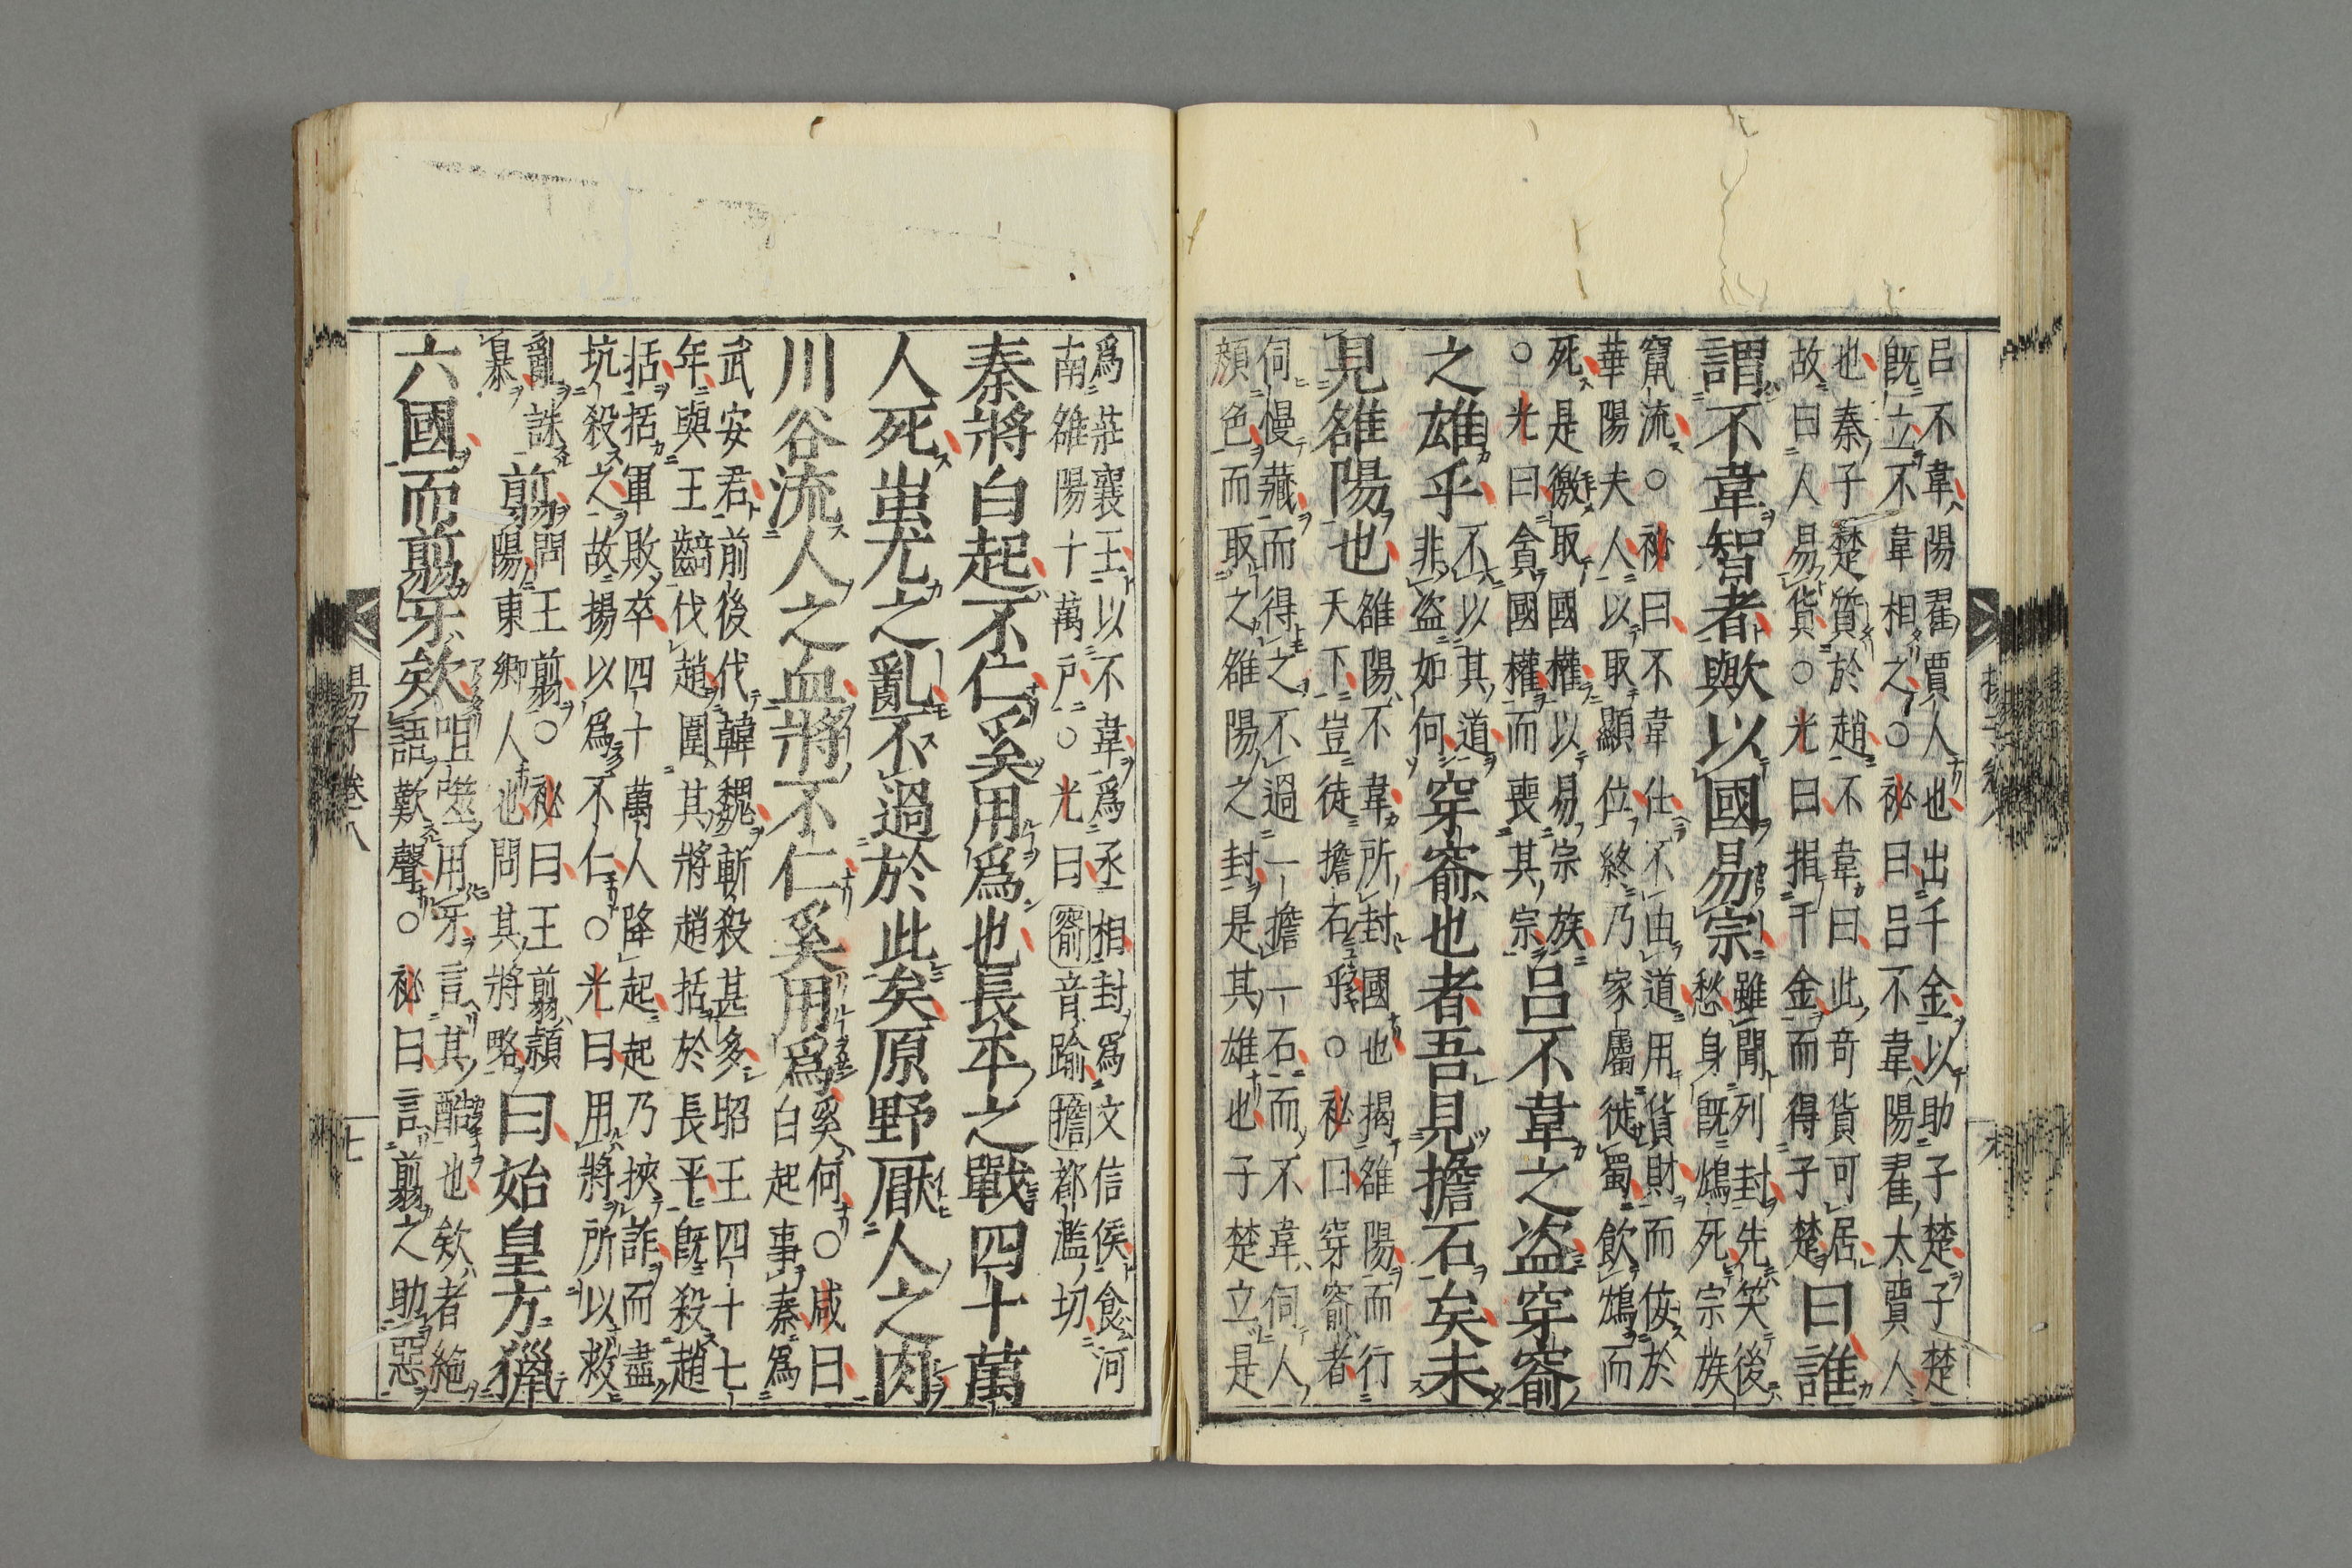 呂不韋陽翟賈人也出千金以助子楚子楚
既立不韋相之○祕曰呂不韋陽翟大賈人
也秦子楚質於趙不韋曰此奇貨可居
故曰人易貨○光曰捐千金而得子楚
曰誰
謂不韋智者歟以國易宗
雖聞列封先笑後
愁身既鴆死宗族
竄流○祕曰不韋仕不由道用貨財而佞於
華陽夫人以取顯位終乃家屬徙蜀飲鴆而
死是徼取國權以易宗族
○光曰貪國權而喪其宗
呂不韋之盗穿窬
之雄乎
不以其道
非盗如何
穿窬也者吾見擔石矣未
見雒陽也
雒陽不韋所封國也揭雒陽而行
天下豈徒擔石乎○祕曰穿窬者
伺慢藏而得之不過一擔一石而不韋伺人
顔色而取之雒陽之封是其雄也子楚立是
爲莊襄王以不韋爲丞相封爲文信侯食河
南雒陽十萬戸○光曰窬音踰擔都濫切
秦將白起不仁奚用爲也長平之戰四十萬
人死蚩尤之亂不過於此矣原野厭人之肉
川谷流人之血將不仁奚用爲
奚何○咸曰
白起事秦爲
武安君前後伐韓魏斬殺甚多昭王四十七
年與王齮伐趙圍其將趙括於長平既殺趙
括括軍敗卒四十萬人降起起乃挾詐而盡
坑殺之故揚以爲不仁○光曰用將所以救
亂誅
暴
翦問王翦○祕曰王翦頻
翦陽東鄉人也問其將略
曰始皇方獵
六國而翦牙欸
咀噬用牙言其酷也欸者絶
語歎聲○祕曰言翦之助惡
揚子卷八
七